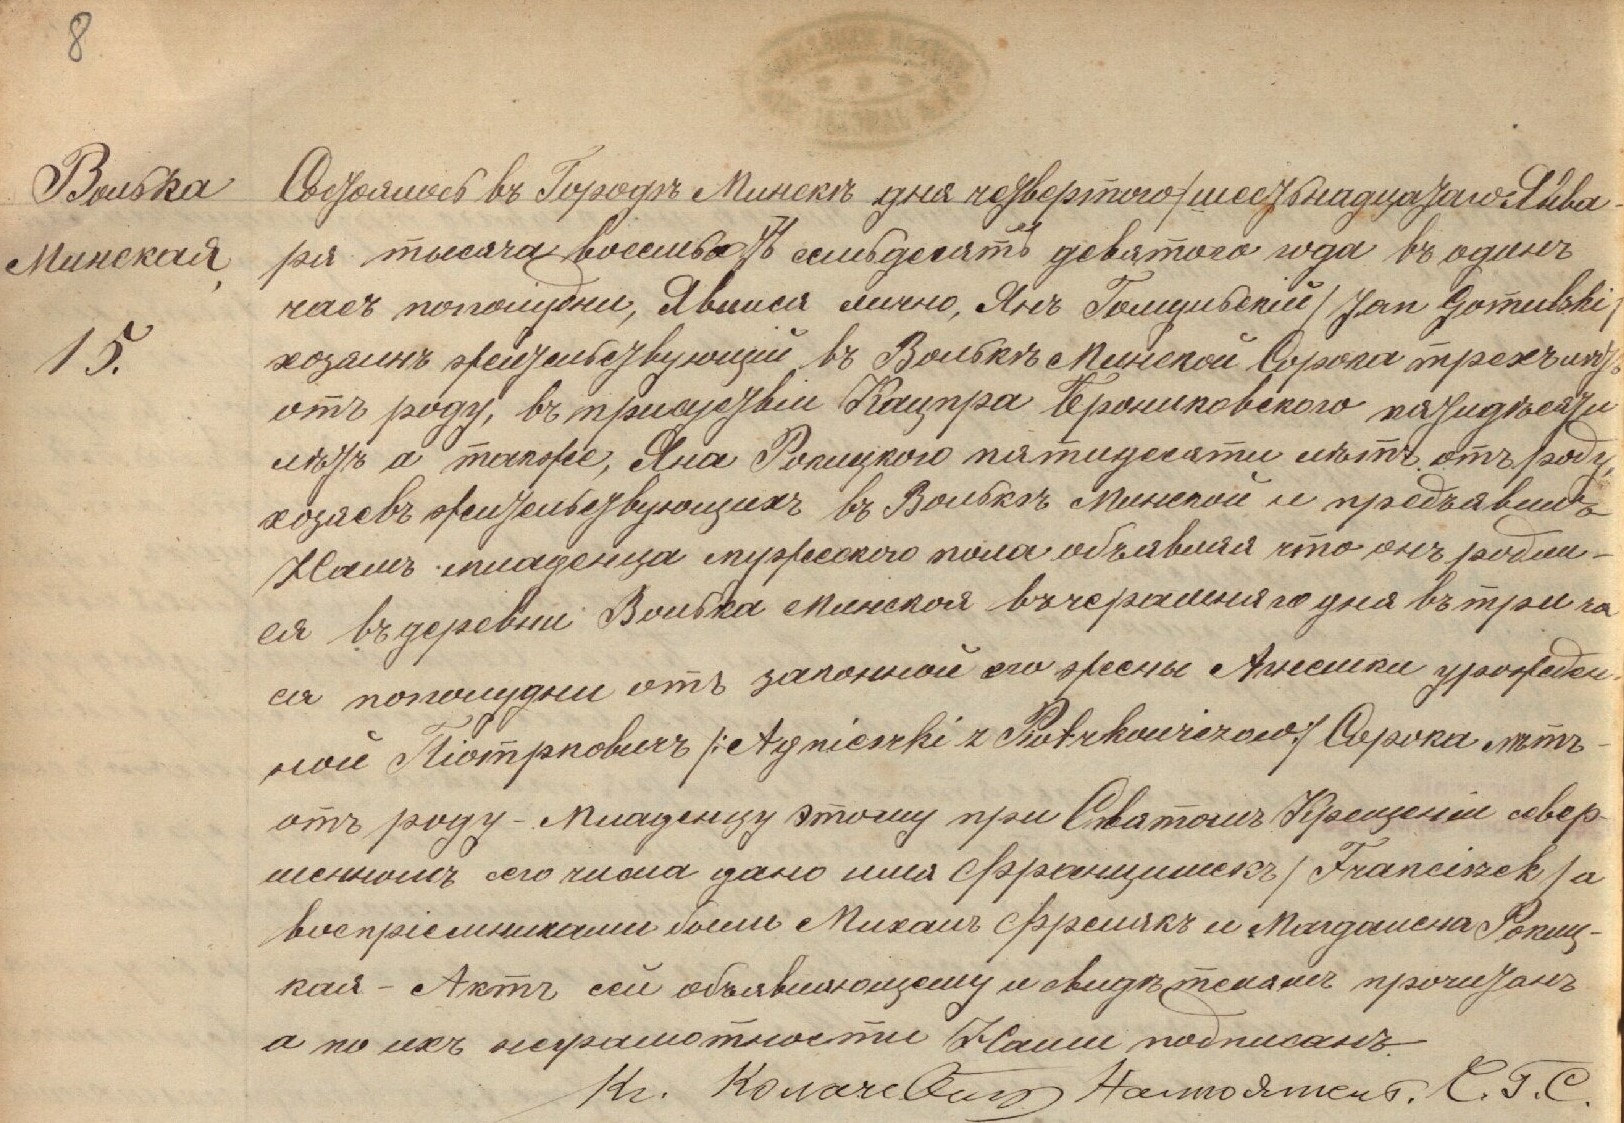 8
Волька
Минская,
15.
Состоялось въ Городѣ Минскѣ дня четвертого / шестьнадцатаго Янва-
ря тысяча восемьсотъ семьдесятъ девятого года въ одинъ
часъ пополудни, Явился лично, Янъ Гомульскій / Jan Gomulski /
хозаинъ жительствующій въ Волькѣ Минской Сорока трехъ лѣтъ
отъ роду, въ присутствіи Кацпра Брониковского пятидѣсяти
лѣтъ а также, Яна Рокицкого пятидесяти лѣтъ отъ роду,
хозяевъ жительствующихъ въ Волькѣ Минской и предъявилъ
Намъ младенца мужеского пола объявляя что онъ родил-
ся въ деревни Волька Минская вчерашняго дня въ три ча
са пополудни отъ законной его жены Агнешки урожден-
ной Піотрковичъ /: Agnieszki z Piotrkowiczow :/ Сорока лѣтъ
отъ роду - Младенцу этому при Святомъ Крещеніи совер-
шенномъ сего числа дано имя Францишекъ / Franciszek / а
воспріемниками были Михалъ Фрелякъ и Магдалена Рокиц-
кая - Актъ сей объявляющему и свидѣтелямъ прочитанъ
а по ихъ неграмотности Нами подписанъ
Кс. Настоятель. С. Г. С.